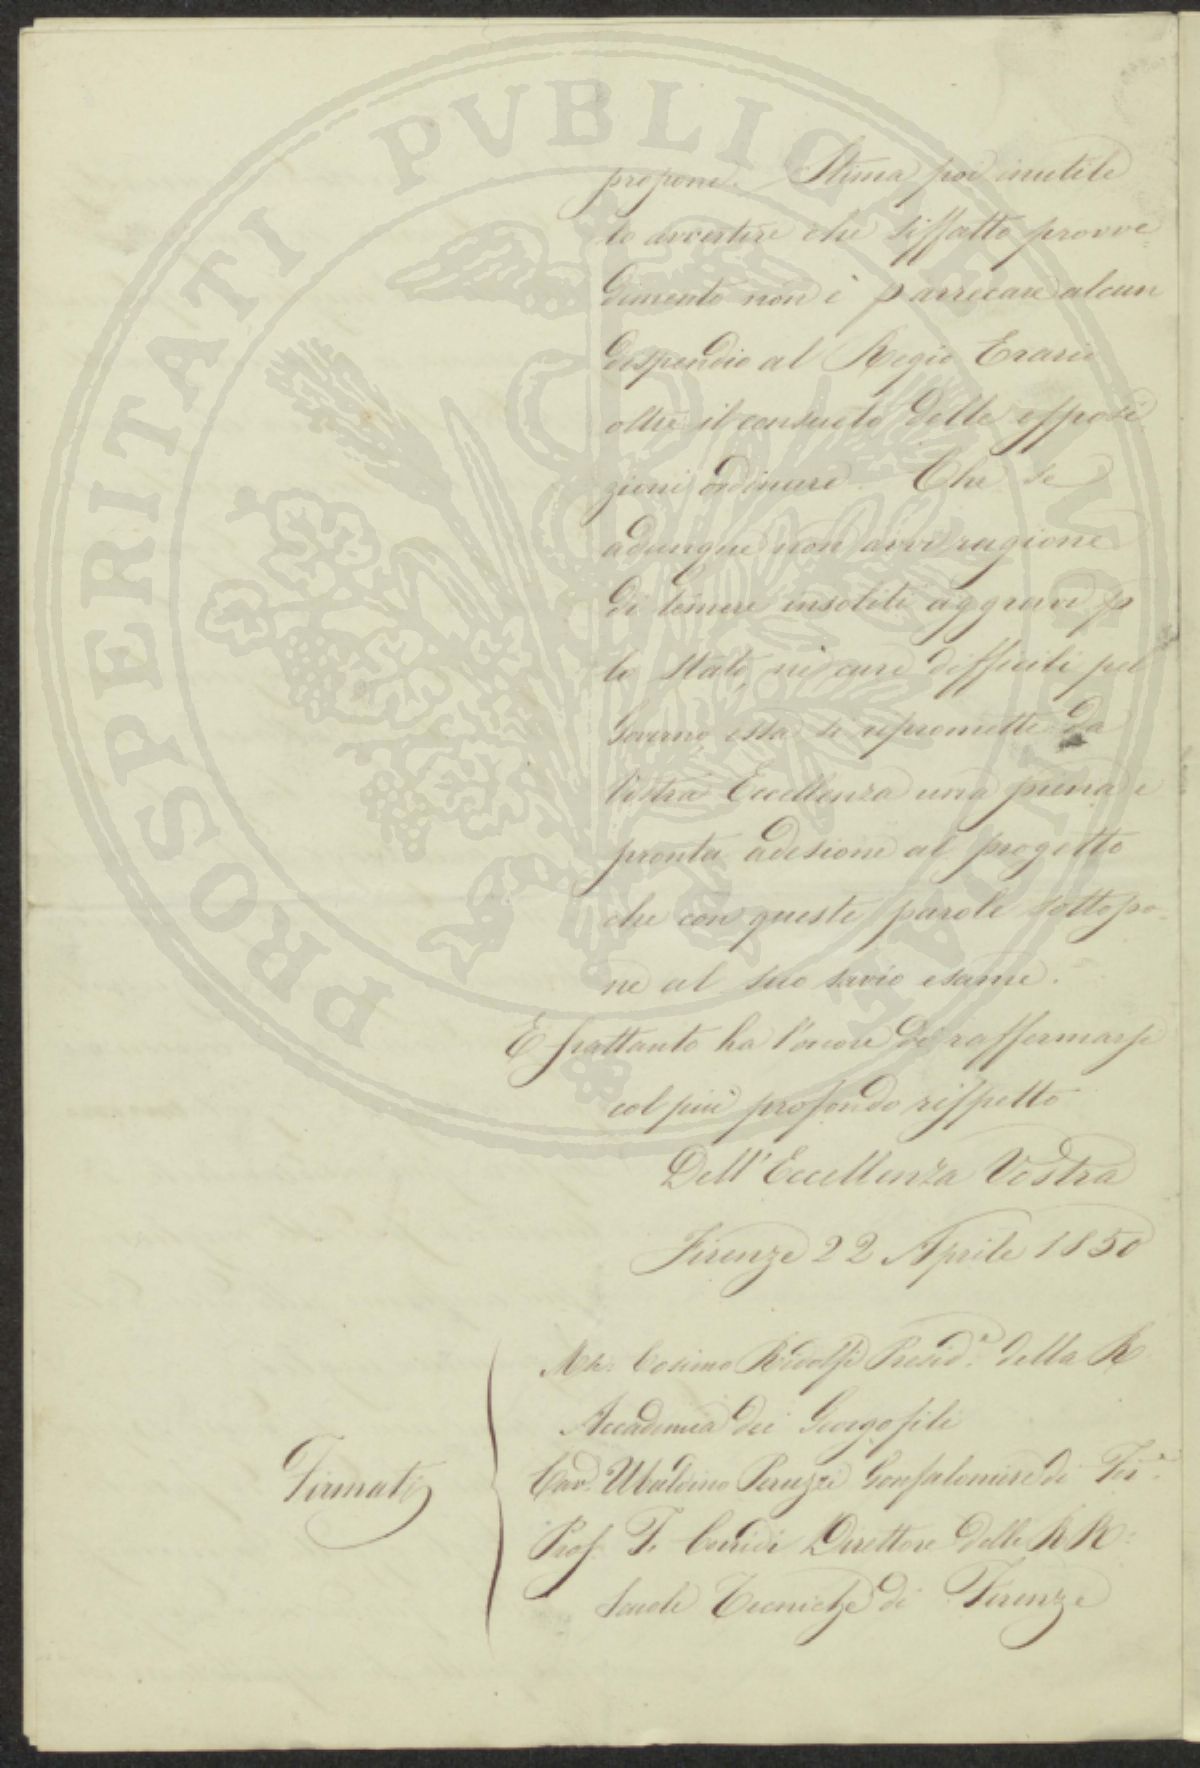 PROSPERITATI PUBLICAE AUGENDAE
propone. Stima poi inutile
lo avvertire che siffatto provve=
dimento non è p arrecare alcun
dispendio al Regio Erario
oltre il consueto delle esposi
zioni ordinarie. Che se
adunque non avvi ragione
di temere insoliti aggravi p
lo Stato, nè cure difficili pel
Governo, essa si ripromette da
Vostra Eccellenza una piena e
pronta adesione al progetto
che con queste parole sottopo-
ne al suo savio esame.
E frattanto ha l'onore di raffermarsi
col più profondo rispetto
Dell'Eccellenza Vostra
Firenze 22 Aprile 1850
Firmati
Mse. Cosimo Ridolfi Presid.e della R
Accademia dei Georgofili
Cav. Ubaldino Peruzzi Gonfaloniere di Fir.e
Prof. F. Corridi Direttore delle RR:
Scuole Tecniche di Firenze